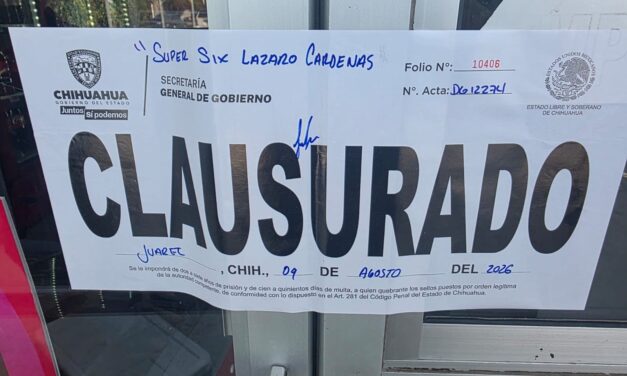 "SUPER SIX LAZARO CARDENAS
CHIHUAHUA
GOBIERNO DEL ESTADO
Juntos Sí podemos
SECRETARÍA
GENERAL DE GOBIERNO
Folio N°: 10406
N°. Acta: DG12274
ESTADOS UNIDOS MEXICANOS
ESTADO LIBRE Y SOBERANO
DE CHIHUAHUA
CLAUSURADO
JUAREZ, CHIH., 09 DE AGOSTO DEL 2026
Se le impondrá de dos a siete años de prisión y de cien a quinientos días de multa, a quien quebrante los sellos puestos por orden legítima
de la autoridad competente, de conformidad con lo dispuesto en el Art. 281 del Código Penal del Estado de Chihuahua.